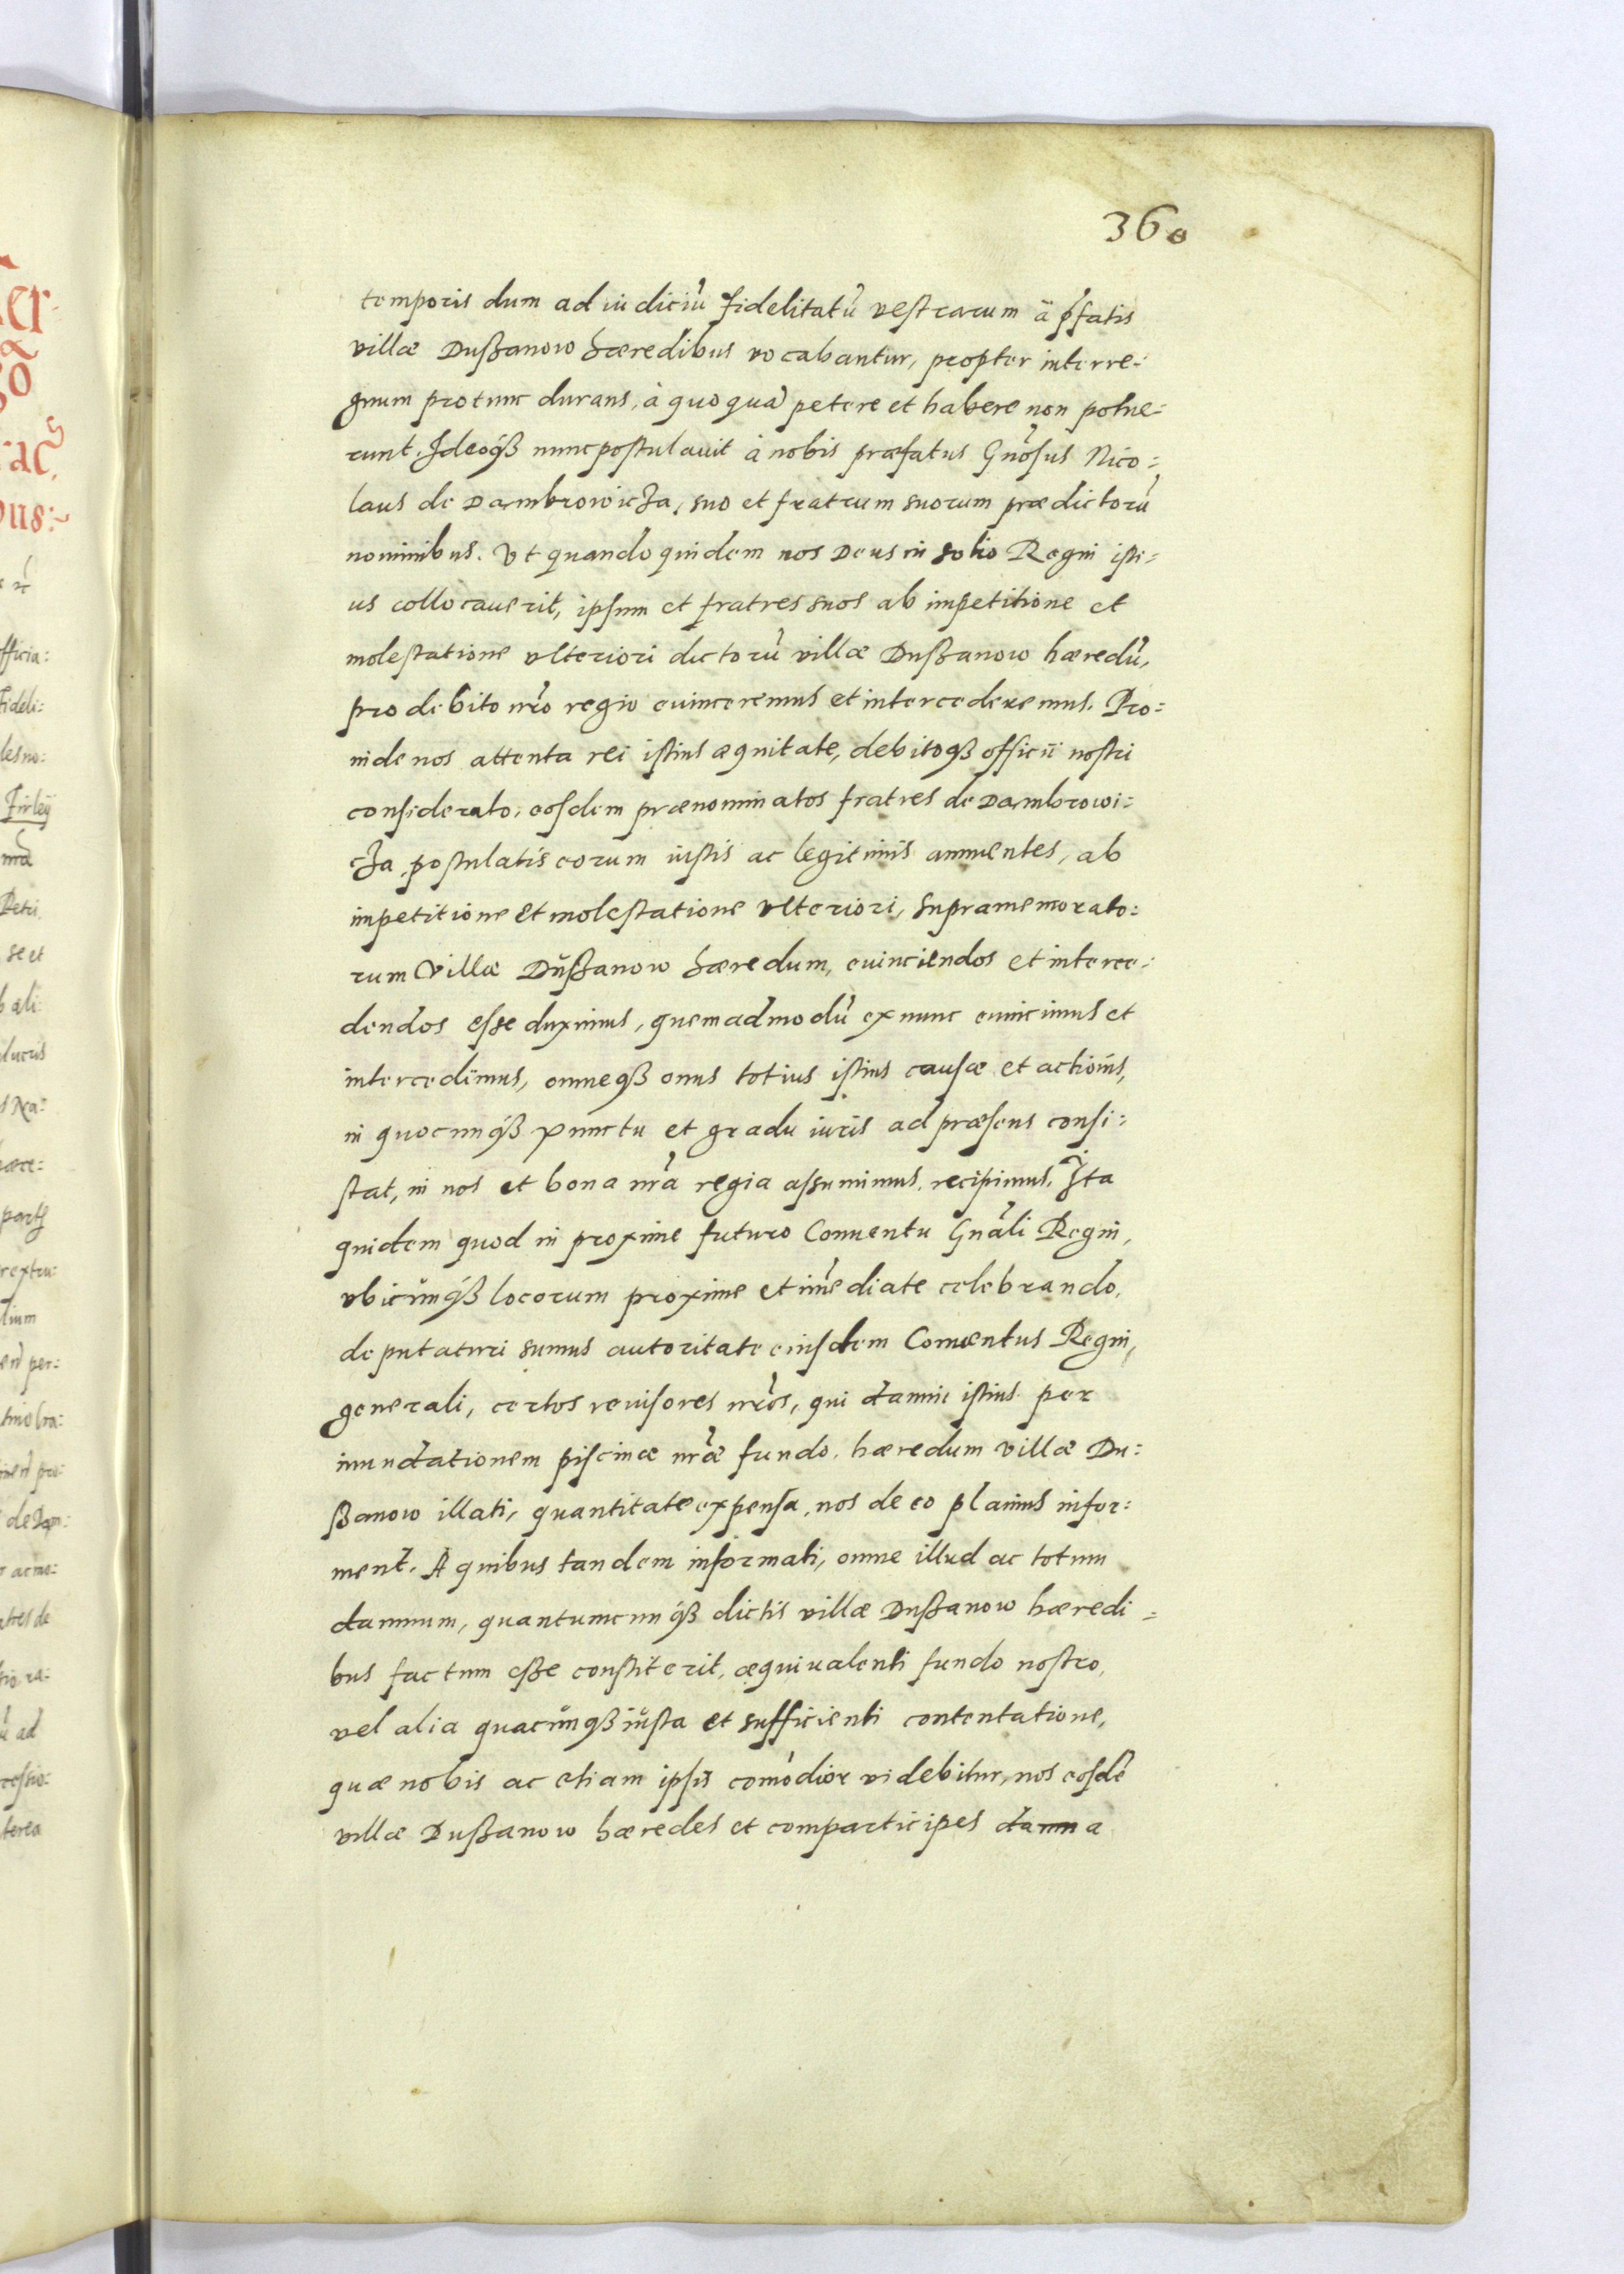 360
temporis dum ad iudiciũ fidelitatũ vestrarum à p̃fatis
villæ Dußanow hæredibus vocabantur, propter interre:
gnum protunc durans, à quoquã petere et habere non potue:
runt. Ideoq́ß nunc postulauit à nobis præfatus Gñosus Nico:
laus de Dambrowicza, suo et fratrum suorum prædictorũ
nominibus. Vt quandoquidem nos Deus in solio Regni isti:
us collocauerit, ipsum et fratres suos ab impetitione et
molestatione vlteriori dictorũ villæ Dußanow hæredũ,
pro debito nr̃o regio euinceremus et intercederemus. Pro:
inde nos attenta rei istius æquitate, debitoqß officij nostri
considerato, eosdem prænominatos fratres de Dambrowi:
cza postulatis eorum iustis ac legitimis annuentes, ab
impetitione et molestatione vlteriori, supramemorato:
rum villæ Dußanow hæredum, euinciendos et interce:
dendos esse duximus, quemadmodũ ex nunc euincimus et
intercedimus, omneqß onus totius istius causæ et actionis,
in quocunq́ß punctu et gradu iuris ad præsens consi:
stat, in nos et bona nr̃a regia assumimus, recipimus. Ita
quidem quod in proxime futuro Conuentu Gñali Regni,
vbicunq́ß locorum proxime et im̃ediate celebrando,
deputaturi sumus autoritate eiusdem Conuentus Regni,
generali, certos reuisores nr̃os, qui damni istius per
inundationem piscinæ nr̃æ fundo, hæredum villæ Du:
ßanow illati, quantitate expensa, nos de eo planius infor:
ment. A quibus tandem informati, omne illud ac totum
damnum, quantumcunq́ß dictis villæ Dußanow hæredi:
bus factum esse constiterit, æquiualenti fundo nostro,
vel alia quacunqß iusta et sufficienti contentatione,
quæ nobis ac etiam ipsis com̃odior videbitur, nos eosdẽ
villæ Dußanow hæredes et comparticipes damna